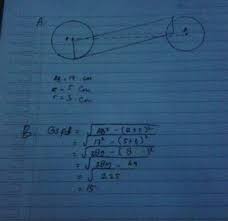 A.
AB = 17 cm
R = 5 cm
r = 3 cm
B. Gspd = √AB² - (R+r)²
= √17² - (5+3)²
= √289 - (8)²
= √289 - 64
= √225
= 15